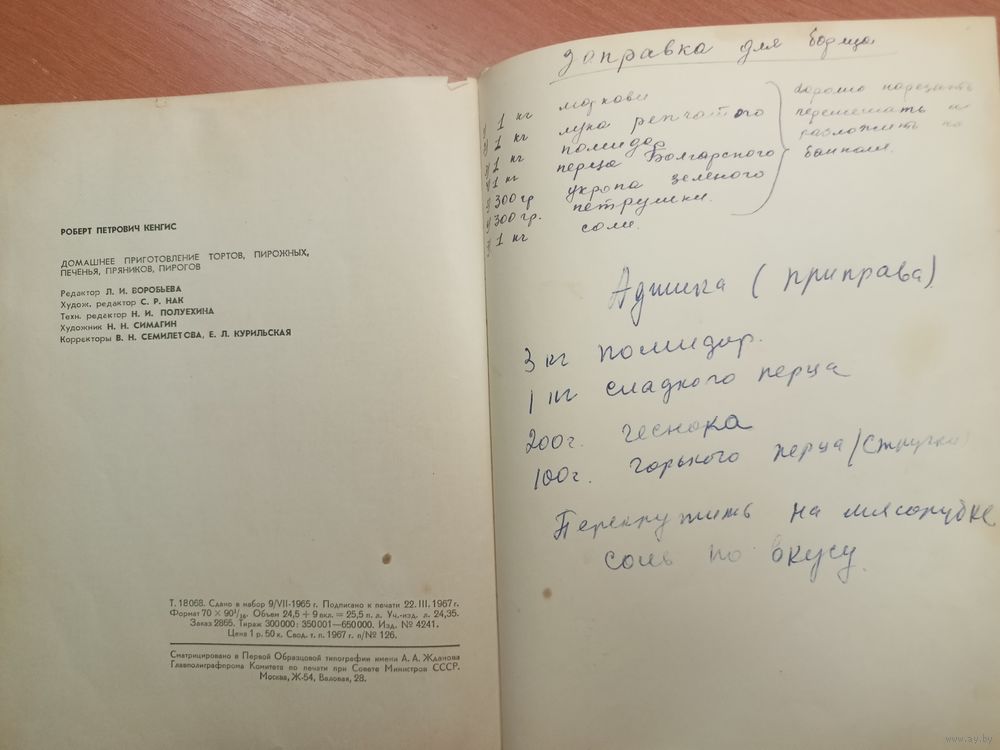 РОБЕРТ ПЕТРОВИЧ КЕНГИС
ДОМАШНЕЕ ПРИГОТОВЛЕНИЕ ТОРТОВ, ПИРОЖНЫХ,
ПЕЧЕНЬЯ, ПРЯНИКОВ, ПИРОГОВ
Редактор Л. И. ВОРОБЬЕВА
Худож. редактор С. Р. НАК
Техн. редактор Н. И. ПОЛУЕХИНА
Художник Н. Н. СИМАГИН
Корректоры В. Н. СЕМИЛЕТОВА, Е. Л. КУРИЛЬСКАЯ
Т. 18068. Сдано в набор 9/VII-1965 г. Подписано к печати 22. III. 1967 г.
Формат 70 × 90¹/₁₆. Объем 24,5 + 9 вкл. = 25,5 п. л. Уч.-изд. л. 24,35.
Заказ 2865. Тираж 300000 : 350001—650000. Изд. № 4241.
Цена 1 р. 50 к. Свод. т. п. 1967 г. п/№ 126.
Сматрицировано в Первой Образцовой типографии имени А. А. Жданова
Главполиграфпрома Комитета по печати при Совете Министров СССР.
Москва, Ж-54, Валовая, 28.
Заправка для борща
1 кг моркови
1 кг лука репчатого
1 кг помидор
1 кг перца Болгарского
300 гр укропа зеленого
300 гр. петрушки.
1 кг соли.
хорошо нарезать
перемешать и
разложить по
банкам.
Аджика (приправа)
3 кг помидор.
1 кг сладкого перца
200 г. чеснока
100 г. горького перца (стручка)
Перекрутить на мясорубке
соль по вкусу.
www.ay.by